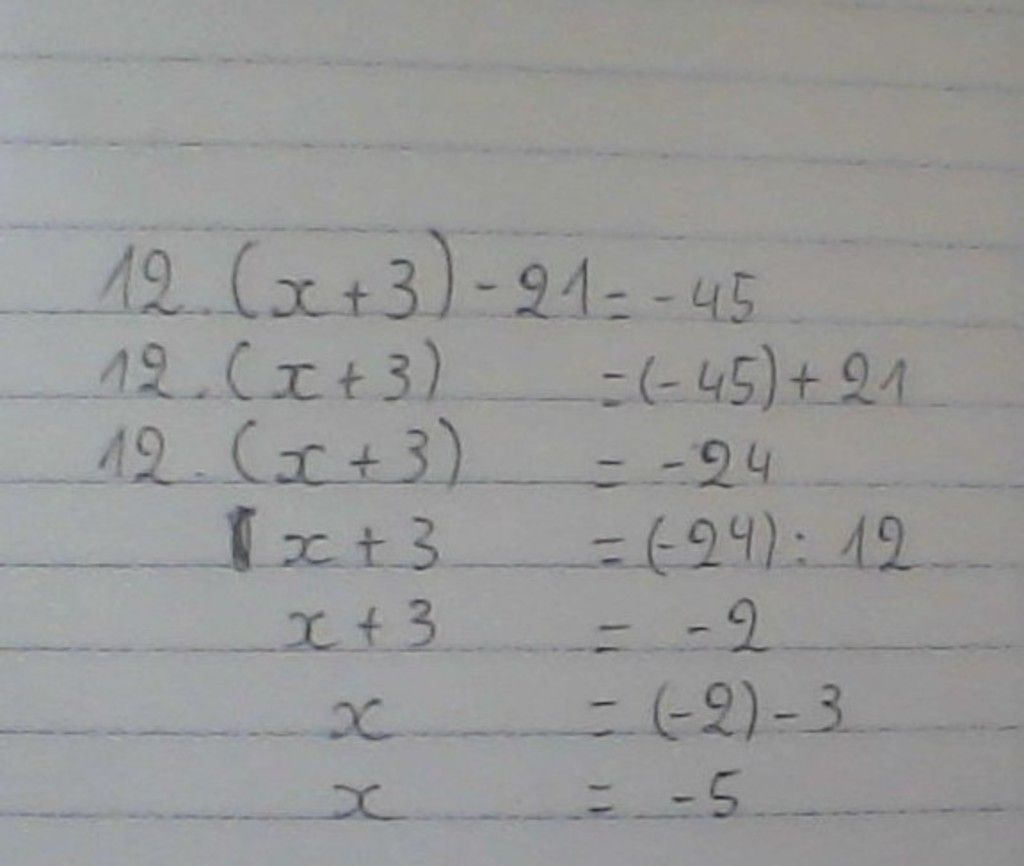 12.(x+3)-21=-45
12.(x+3) =(-45)+21
12.(x+3) = -24
x+3 =(-24): 12
x+3 = -2
x = (-2)-3
x = -5